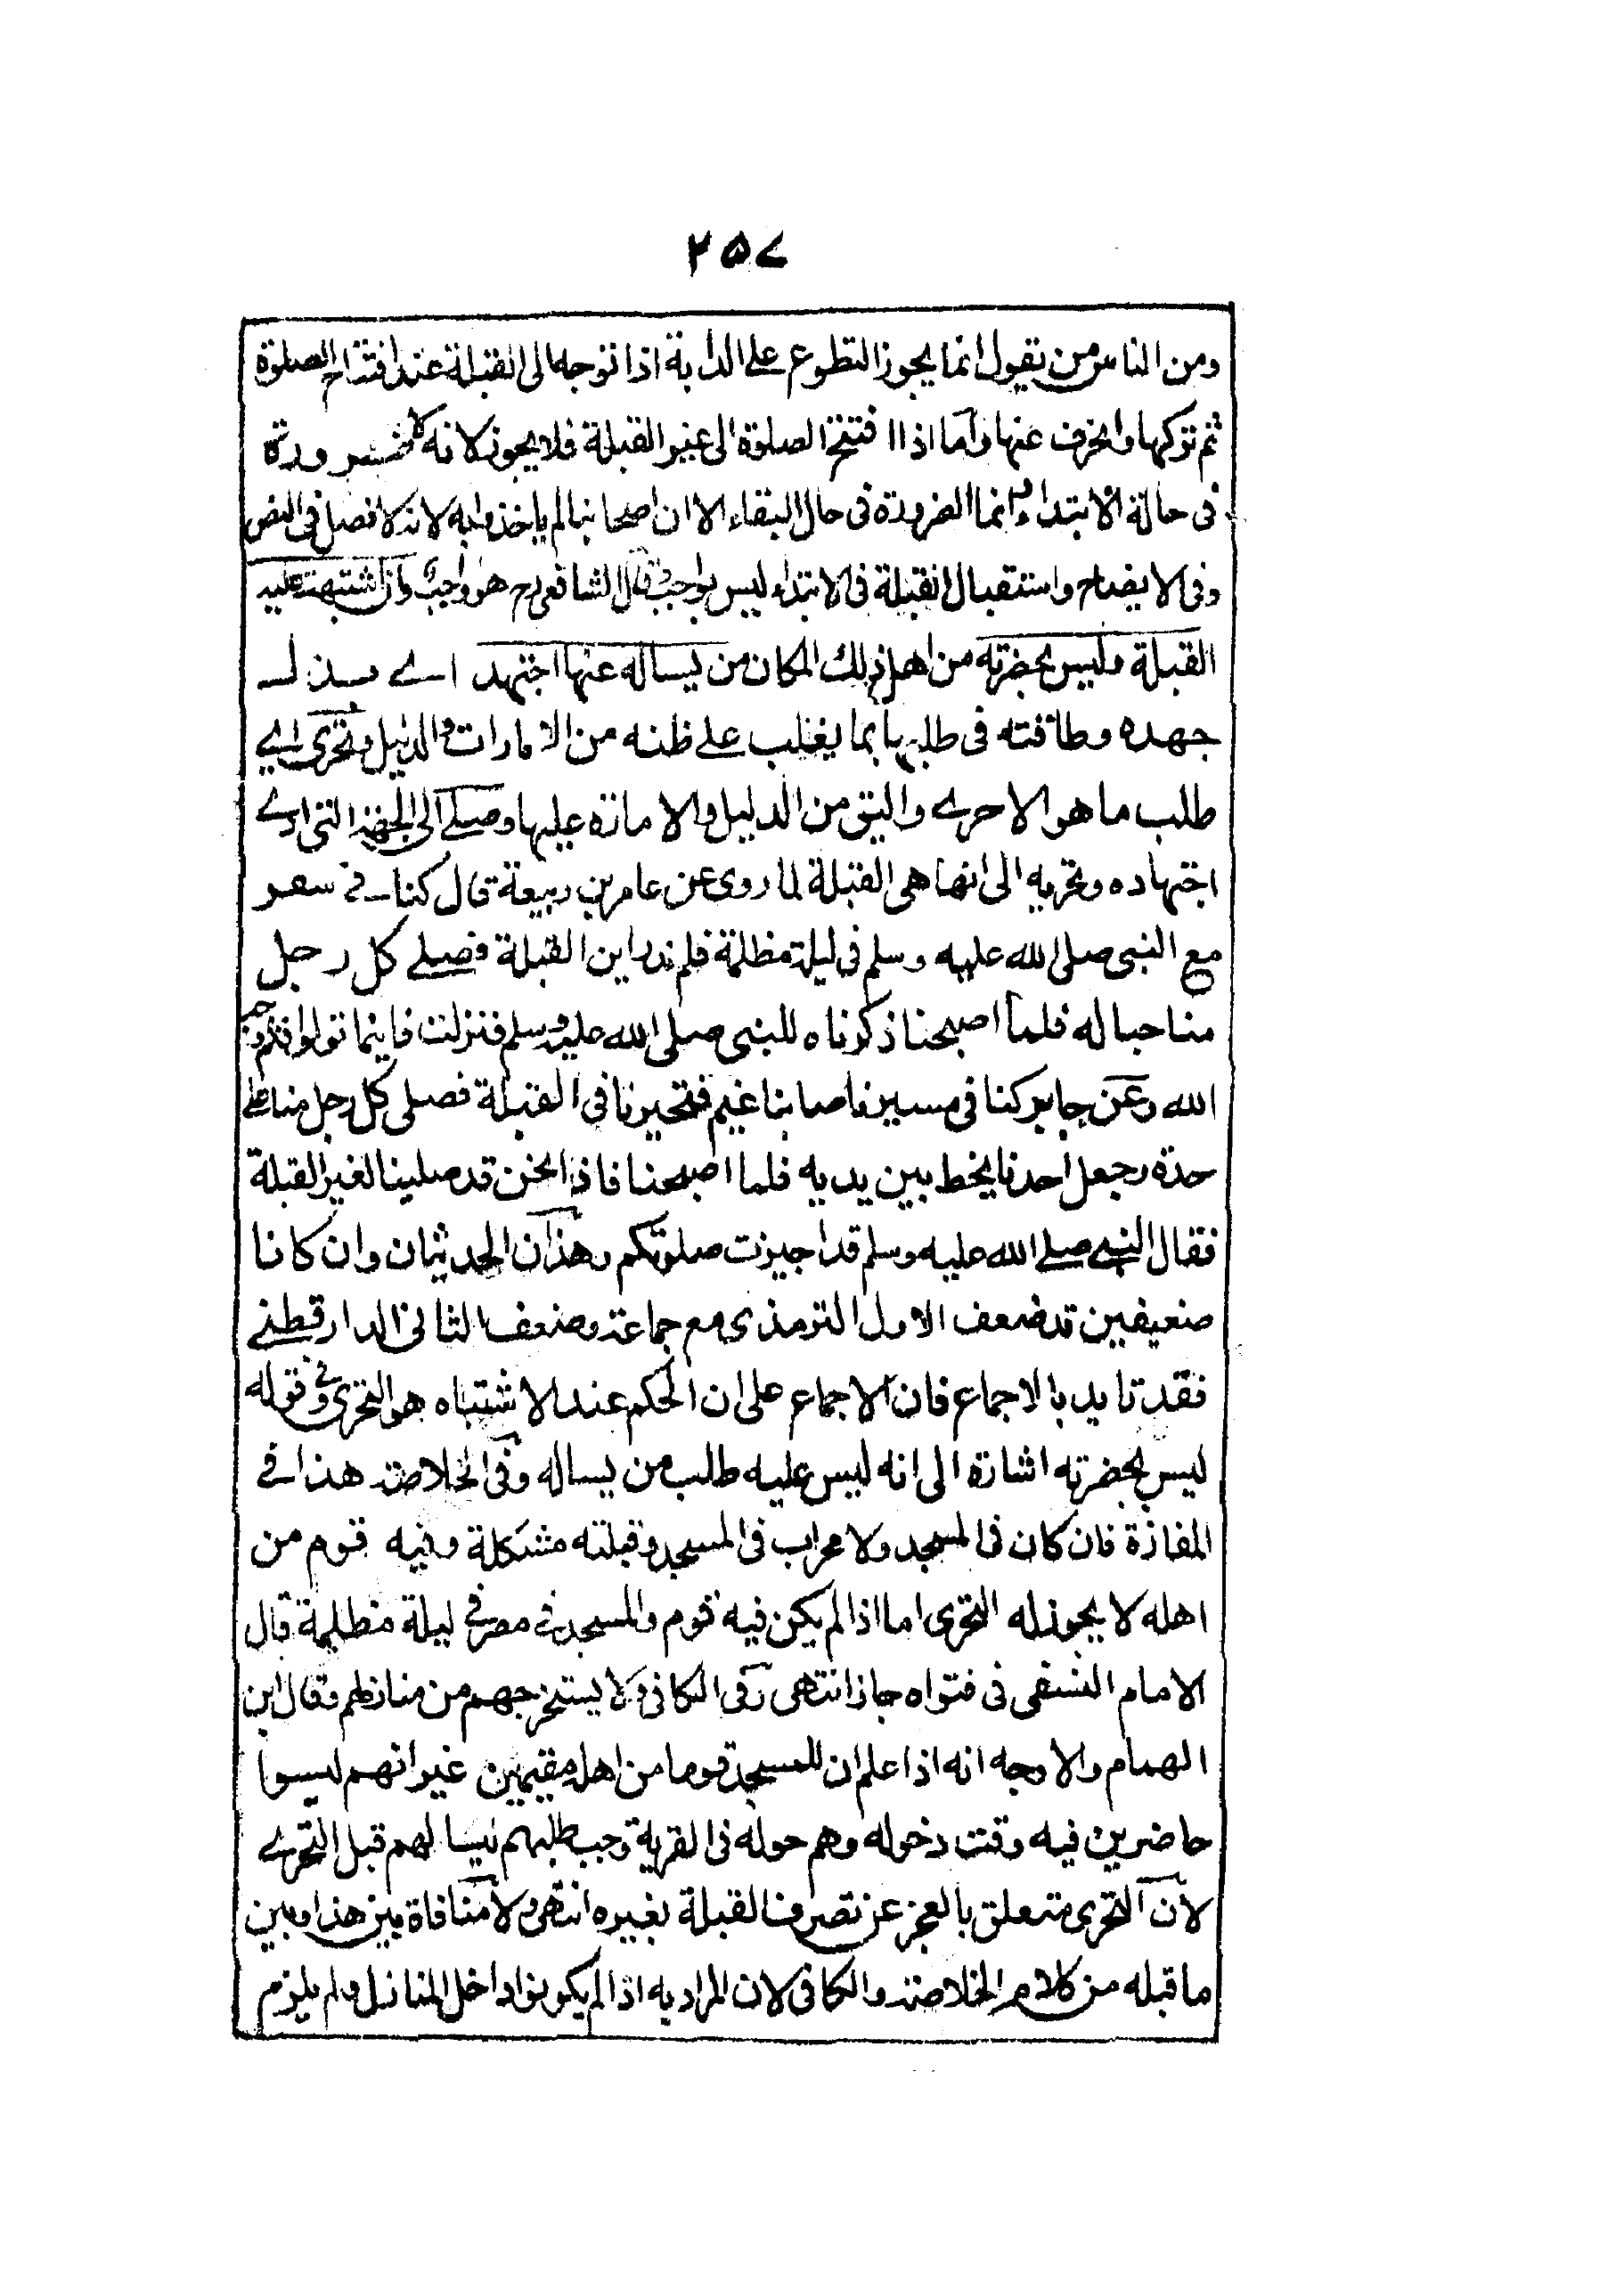 ۲۵۷
ومن الناس من يقول انما يجوز التطوع على الدابة اذا توجه الى القبلة عند افتتاح الصلوة
ثم تركها وانحرف عنها واما اذا افتتح الصلوة الى غير القبلة فلا يجوز لانه لا ضرورة
فى حالة الابتداء وانما الضرورة فى حال البقاء الا ان اصحابنا لم ياخذوا به لانه لا فصل فى النص
وفى الايضاح واستقبال القبلة فى الابتداء ليس بواجب وقال الشافعى رح هو واجب وان اشتبهت عليه
القبلة وليس بحضرته من اهل ذلك المكان من يساله عنها اجتهد اے بذل
جهده وطاقته فى طلبها بما يغلب على ظنه من الامارات والدليل وتحرى اے
طلب ما هو الاحرے واليق من الدليل والامارة عليها وصلے الى الجهة التى ادے
اجتهاده وتحريه الى انها هى القبلة لما روى عن عامر بن ربيعة قال كنا فى سفر
مع النبى صلى الله عليه وسلم فى ليلة مظلمة فلم ندر اين القبلة فصلے كل رجل
منا حياله فلما اصبحنا ذكرناه للنبى صلى الله عليه وسلم فنزلت فاينما تولوا فثم وجه
الله وعن جابر كنا فى مسير فاصابنا غيم فتحيرنا فى القبلة فصلى كل رجل منا على
حدة وجعل احدنا يخط بين يديه فلما اصبحنا فاذا نحن قد صلينا لغير القبلة
فقال النبى صلے الله عليه وسلم قد اجيزت صلوتكم وهذان الحديثان وان كانا
ضعيفين قد ضعف الاول الترمذى مع جماعة وضعف الثانى الدارقطنے
فقد تايد بالاجماع فان الاجماع على ان الحكم عند الاشتباه هو التحرى وفى قوله
ليس بحضرته اشارة الى انه ليس عليه طلب من يساله وفى الخلاصة هذا فى
المفازة فان كان فى المسجد ولا محراب فى المسجد وقبلته مشكلة وفيه قوم من
اهله لا يجوز له التحرى اما اذا لم يكن فيه قوم والمسجد فى مصر فى ليلة مظلمة قال
الامام النسفى فى فتواه جاز انتهى وفى الكافى ولا يستخرجهم من منازلهم وقال ابن
الهمام والاوجه انه اذا علم ان للمسجد قوما من اهله مقيمين غير انهم ليسوا
حاضرين فيه وقت دخوله وهم حوله فى القرية وجب طلبهم ليسالهم قبل التحرے
لان التحرى متعلق بالعجز عن تصرف القبلة بغيره انتهى ولا منافاة بين هذا وبين
ما قبله من كلام الخلاصة والكافى لان المراد به اذا لم يكونوا داخل المنازل ولم يلزم